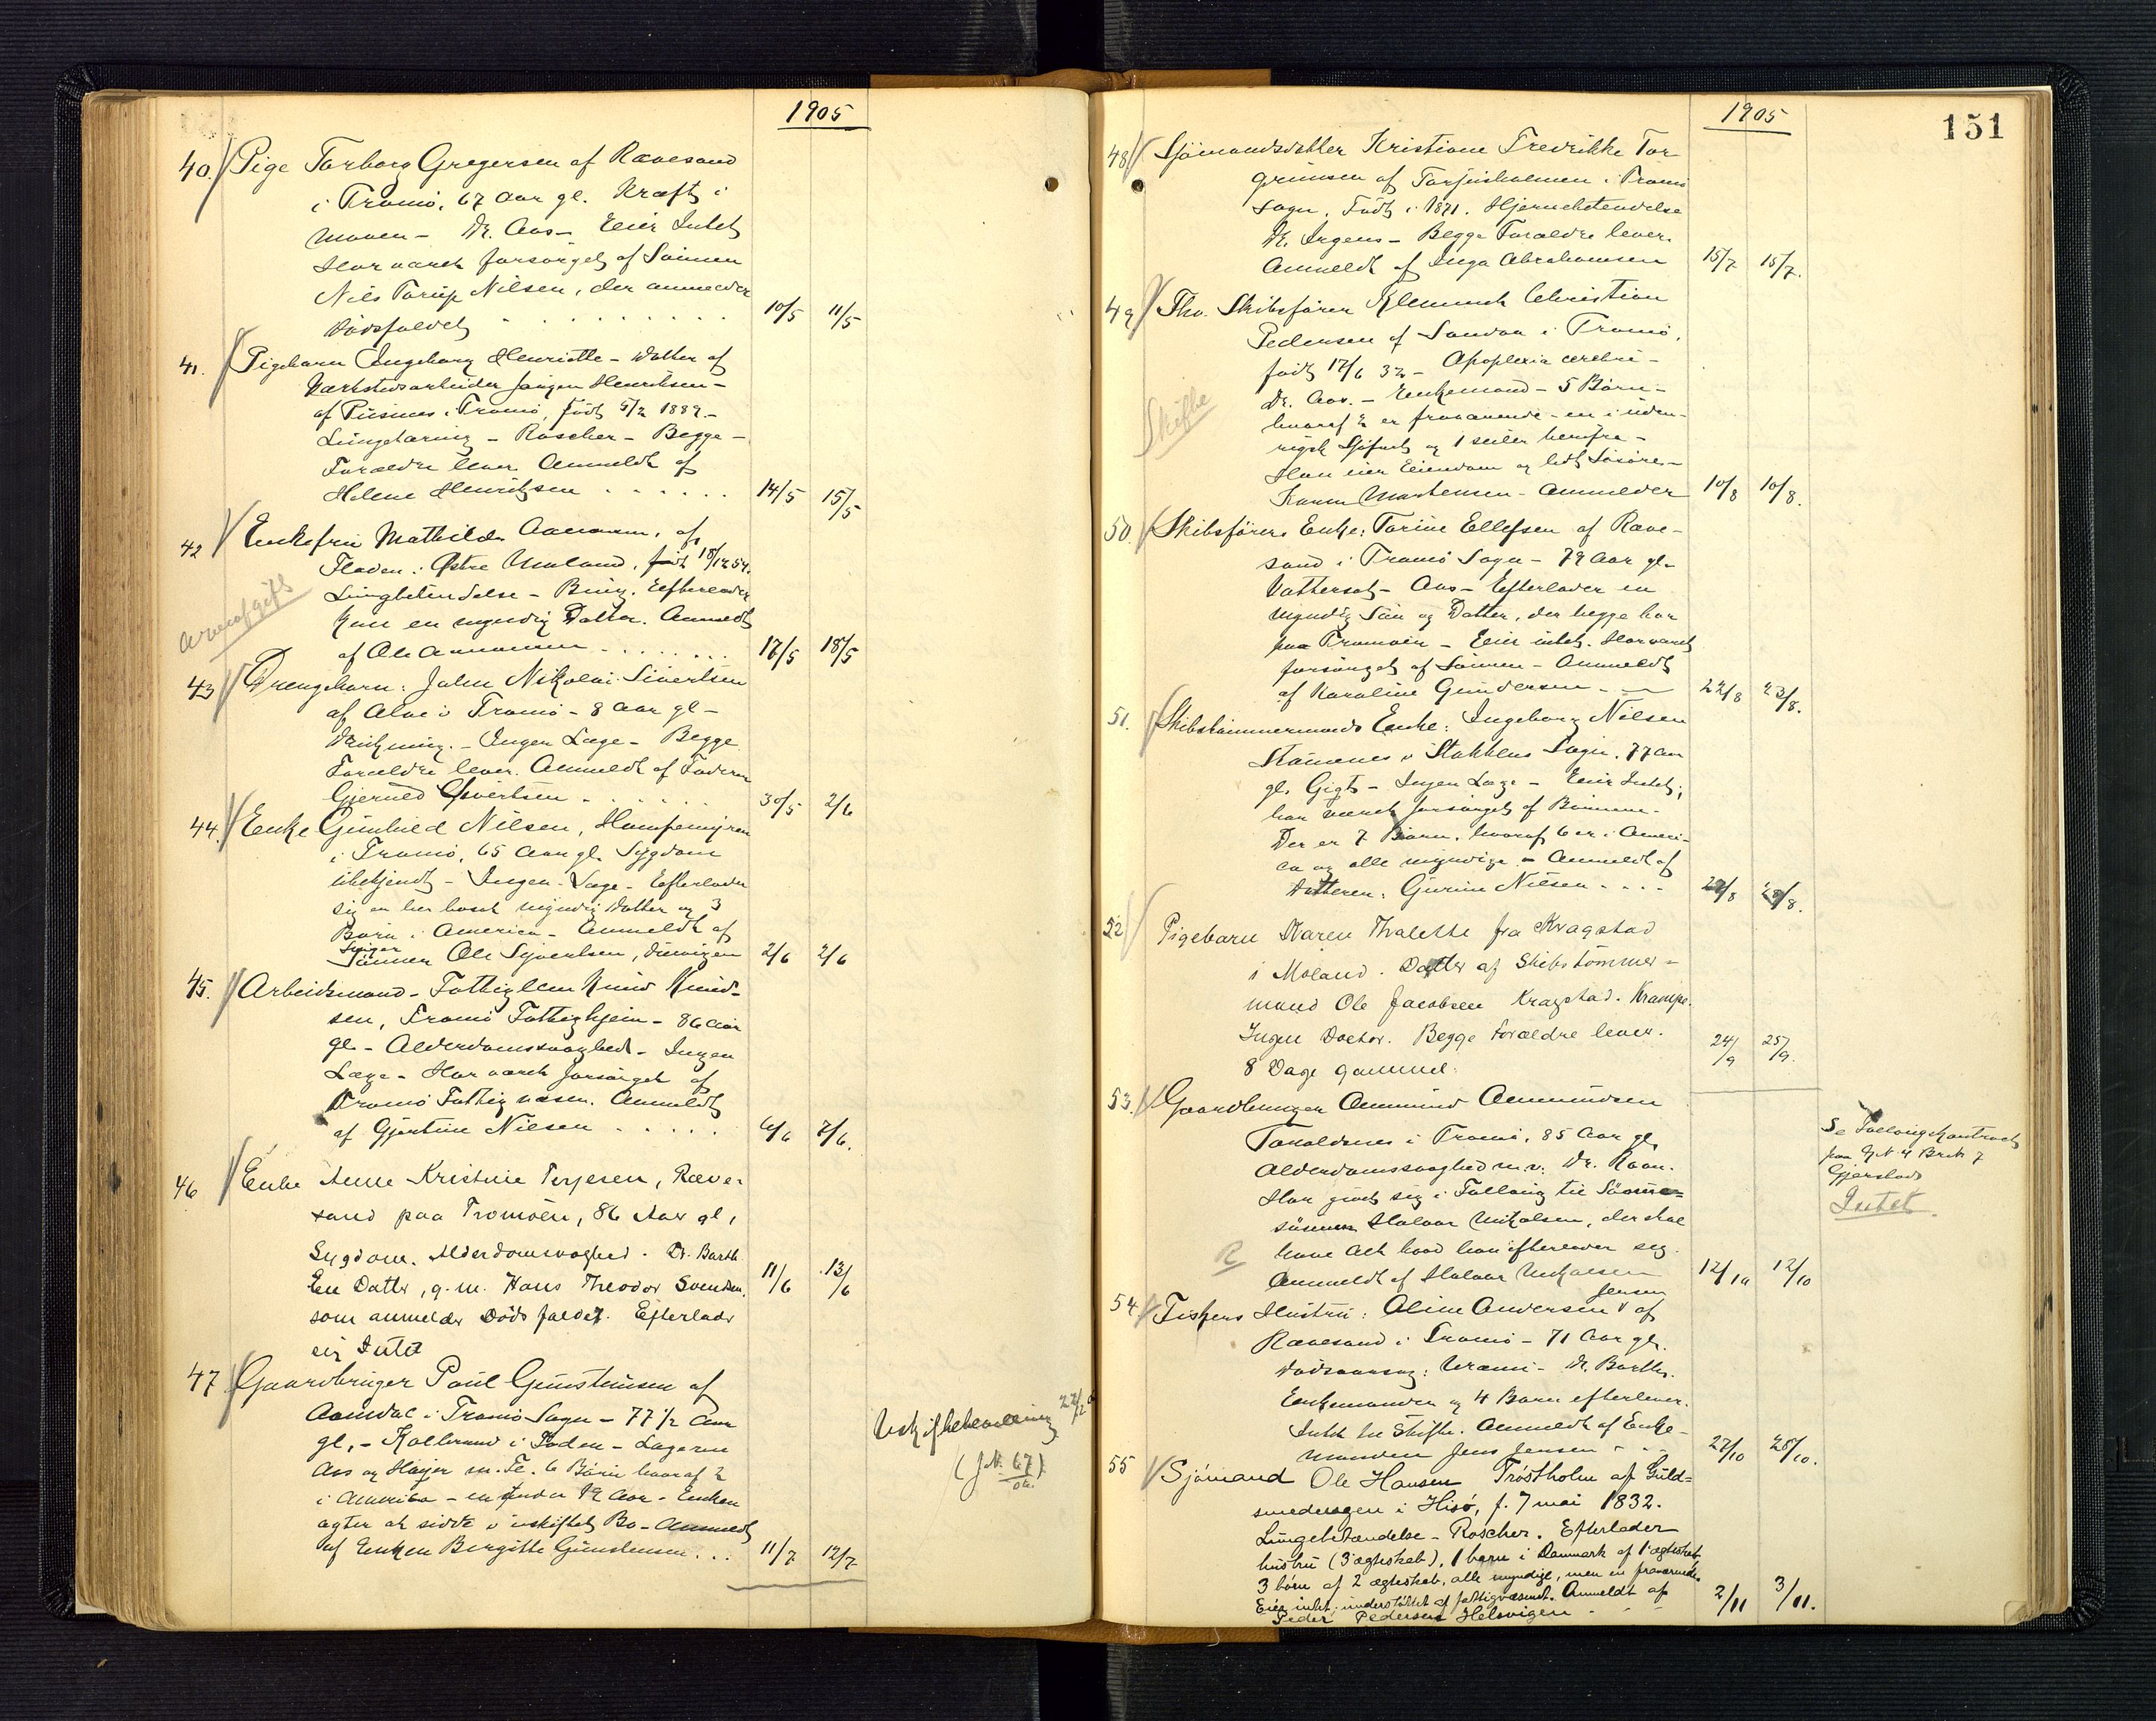 1905
40. Pige Torborg Gregersen af Rævesand
i Tromö, 67 Aar gl. Kræft i
Maven - Dr. Aas - Eier Intet
Har været forsörget af Sönnen
Nils Terjus Nilsen, der anmelder
Dödsfaldet . . . . 10/5 11/5
41. Pigebarn Ingeborg Henriette - Datter af
Værkstedsarbeider Jörgen Henriksen -
af Pusnes i Tromö, födt 5/2 1889 -
Lungetæring - Roscher - Begge
Forældre lever. Anmeldt af
Helene Henriksen . . . . . . 14/5 15/5
42 Enkefru Mathilde Aanonsen, af
Fladen i Östre Moland, født 18/12 54.
Lungbetændelse - Efterlader
kun en myndig Datter. Anmeldt
af Ole Aanonsen . . . . . . 17/5 18/5
Arveafgift
43 Drengebarn: John Nikolai Sivertsen
af Alve i Tromö - 8 Aar gl -
Drukning. - Ingen Læge - Begge
Forældre lever. Anmeldt af Faderen
Gjerulf Sivertsen . . . . . . 30/5 2/6
44. Enke Gunhild Nilsen, Hampemyren
i Tromö, 65 Aar gl. Sygdom
ubekjendt - Ingen Læge - Efterlader
sig en her bosat myndig Datter og 3
Børn i America - Anmeldt af
Svigersönnen Ole Syvertsen, 2/6 2/6
45. Arbeidsmand - Fattiglem Knud Knud-
sen, Tromö Fattighjem - 86 Aar
gl - Alderdomssvaghed - Ingen
Læge - Har været forsörget af
Tromö Fattigvæsen. Anmeldt
af Gjertine Nilsen . . . . . 6/6 7/6.
46 Enke Anne Kristine Terjesen, Ræve-
sand paa Tromöen, 86 Aar gl,
Sygdom. Alderdomsvaghed. Dr. Barth
En Datter, g. m. Hans Theodor Svendsen, 11/6 13/6
som anmelder Dödsfaldet. Efterlader
sig Intet
47 Gaardbruger Paul Gunstensen af
Aamdal i Tromö Sogn - 77 1/2 Aar
gl. - Kolbrand i Foden - Lægerne
Aas og Høyer m. Fl. 6 Börn hvoraf 2
i Amerika - en under 18 Aar - Enken
agter at sidde i uskiftet Bo - Anmeldt
af Enken Bergitte Gunstensen . . . 11/7 12/7
Uskiftebevilling 27/12
(J.N. 67)
1905
151
48 Sjömandsdatter Kristiane Fredrikke Tor-
grimsen af Torjusholmen i Tromö
Sogn. Födt i 1871. Hjernebetændelse
Dr. Irgens - Begge Forældre lever.
Anmeldt af Inga Abrahamsen 15/7 15/7.
49 Fhv. Skibsförer Klemmet Christian
Pedersen af Sandaa i Tromö,
födt 17/6 32 - Apoplexia cerebri -
Dr. Aas. - Enkemand - 5 Börn -
hvoraf 2 er fraværende - en i uden-
rigsk Sjöfart og 1 seiler herifra -
Han eier Eiendom og lidt Lösöre -
Karen Mortensen - anmelder 10/8 10/8.
Skifte
50. Skibsförers Enke: Torine Ellefsen af Ræve-
sand i Tromö Sogn - 79 Aar gl -
Vattersot - Aas - Efterlader en
myndig Sön og Datter, der begge bor
paa Tromöen - Eier intet. Har været
forsörget af Sönnen - Anmeldt
af Karoline Gundersen - 22/8 23/8.
51. Skibstömmermands Enke: Ingeborg Nilsen
Staumnes i Stokkens Sogn. 77 Aar
gl. Gigt - Ingen Læge - Eier Intet,
har været forsörget af Börnene -
Der er 7 Börn, hvoraf 6 er i Ameri-
ca og alle myndige - Anmeldt af
Datteren: Gurine Nilsen . . . . 27/8 28/8.
52 Pigebarn Karen Thalette fra Kragstad
i Moland. Datter af Skibstömmer-
mand Ole Jacobsen Kragstad. Krampe.
Ingen Doctor. Begge Forældre lever. 24/9 25/9.
8 Dage gammel.
53. Gaardbruger Ommund Ommundsen
Torvaldsnes i Tromö, 85 Aar gl.
Alderdomssvaghed m. v. Dr. Roan.
Har givet sig i Follaug til Sönne-
sönnen Halvor Mikalsen, der skal
have Alt hvad han efterlever sig.
Anmeldt af Halvor Mikalsen 12/10 12/10
R
Se Follaugskontract
paa G.N. 4 Br.N. 7
Gjerstad
Intet.
54 Fiskers Hustru: Aline Andersen Jensen af
Rævesand i Tromö - 71 Aar gl.
Dödsaarsag: Uræmi - Dr. Barth.
Enkemanden og 4 Börn efterlever.
Intet til Skifte. Anmeldt af Enke-
manden Jens Jensen - - - 27/10 28/10.
55 Sjömand Ole Hansen Tröstholm af Guld-
smedengen i Hisö, f. 7 mai 1832.
Lungebetændelse - Roscher. Efterlader
hustru (3 ægteskab), 1 barn i Danmark af 1 ægteskab
3 börn af 2 ægteskab, alle myndige, men en fraværende.
Eier intet, understöttet af fattigvæsenet. Anmeldt af
Peder Pedersen Helsvigen - - - 2/11 3/11.